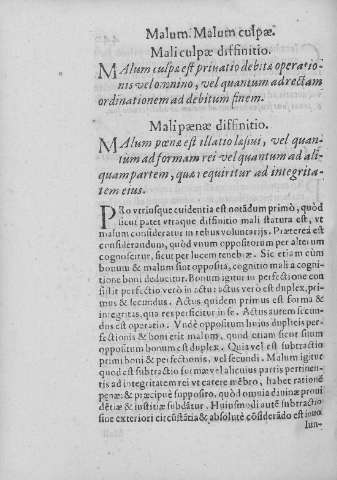 Malum. Malum culpæ.
Mali culpæ diffinitio.
MAlum culpæ est priuatio debitæ operatio-
nis vel omnino, vel quantum ad rectam
ordinationem ad debitum finem.
Mali pænæ diffinitio.
MAlum pœnæ est illatio læsiua, vel quan-
tum ad formam rei vel quantum ad ali-
quam partem, quæ requiritur ad integrita-
tem eius.
PRo vtriusque euidentia est notãdum primò, quòd
sicut patet vtraque diffinitio mali statura est, vt
malum consideratur in rebus voluntarijs. Præterea est
considerandum, quòd vnum oppositorum per alterum
cognoscitur, sicut per lucem tenebræ. Sic etiam cùm
bonum & malum sint opposita, cognitio mali a cogni
tione boni deducitur. Bonum igitur in perfectione con
sistit perfectio verò in actu: actus verò est duplex, pri-
mus & secundus. Actus quidem primus est forma &
integritas, qua res perficitur in se. Actus autem secun-
dus est operatio. Vndè oppositum huius duplicis per-
fectionis & boni erit malum, quod etiam sicut suum
oppositum bonum est duplex. Quia vel est subtractio
primi boni & perfectionis, vel secundi. Malum igitur
quod est subtractio formæ vel alicuius partis pertinen-
tis ad integritatem rei vt carere mẽbro, habet rationẽ
penæ: & præcipuè supposito, quòd omnia diuinæ proui
dẽtiæ & iustitiæ subdãtur. Huiusmodi autẽ subtractio
siue exteriori circũstãtia & absolutè cõsiderãdo est
Iun-